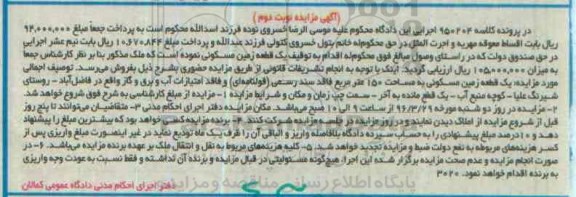 (آگهی مزایده نوبت دوم)
در پرونده کلاسه ۹۵۰۲۰۴ اجرایی این دادگاه محکوم علیه موسی الرضا خسروی نوده فرزند اسدالله محکوم است به پرداخت جمعاً مبلغ ۹۲,۰۰۰,۰۰۰
ریال بابت اقساط معوقه مهریه و اجرت المثل در حق محکوم‌له خانم بتول خسروی کتولی فرزند عبدالله و پرداخت مبلغ ۱۰,۶۷۰,۸۴۴ ریال بابت نیم عشر اجرایی
در حق صندوق دولت که در راستای وصول مبالغ فوق محکوم‌له اقدام به توقیف یک قطعه زمین مسکونی نموده است که ملک مذکور بنا بر نظر کارشناس جمعاً
به میزان ۱۰۵,۰۰۰,۰۰۰ ریال ارزیابی گردید. اینک با توجه به انجام تشریفات قانونی از طریق مزایده حضوری بشرح ذیل بفروش می‌رسد. توصیف اجمالی
مورد مزایده: یک قطعه زمین مسکونی به مساحت ۱۵۰ متر مربع فاقد سند رسمی (قولنامه‌ای) و فاقد امتیازات آب و برق و گاز واقع در فاضل‌آباد - روستای
شیرنگ علیا - کوچه منبع آب - یک قطعه مانده به آخر - سمت چپ زمان و مکان و شرایط مزایده ۱- مزایده از مبلغ کارشناسی به شرح فوق شروع خواهد شد.
۲- مزایده در روز دو شنبه مورخه ۹۶/۳/۲۹ از ساعت ۹ الی ۱۰ صبح می‌باشد. مکان مزایده دفتر اجرای احکام مدنی ۳- متقاضیان می‌توانند تا پنج روز
قبل از شروع مزایده از املاک دیدن نمایند و در روز مزایده در جلسه مزایده شرکت کنند. ۴- برنده مزایده کسی خواهد بود که بیشترین مبلغ را پیشنهاد
دهد و ۱۰ درصد مبلغ پیشنهادی را به حساب سپرده دادگاه بلافاصله واریز و الباقی آن را ظرف یک ماه تودیع نماید در غیر اینصورت مبلغ واریزی پس از
کسر هزینه‌های مربوطه به نفع دولت ضبط و مزایده تجدید خواهد شد. ۵- کلیه هزینه‌های مربوط به نقل و انتقال ملک بر عهده برنده مزایده می‌باشد. ۶- در
صورت انجام مزایده و عدم صحت مزایده برگزار شده این اجرا، هیچ‌گونه مسئولیتی در قبال مزایده و برنده آن نداشته و فقط نسبت به عودت وجه واریزی
به برنده اقدام خواهد نمود. ۳۰۲۰
دفتر اجرای احکام مدنی دادگاه عمومی کمالان
پایگاه اطلاع رسانی مناقصه و مزایده